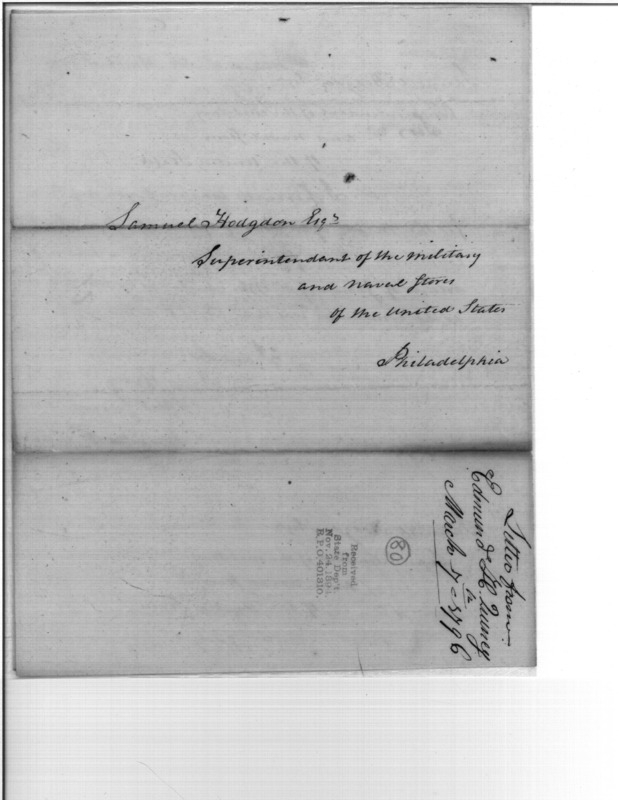 Samuel Hodgdon Esqr
Superintendant of the military
and naval stores
of the United States
Philadelphia
Letter from
Edmund H. Quincy
March 7th 1796
80
Received
from
State Dep't.
Nov. 24, 189
R.P.O. 401310.